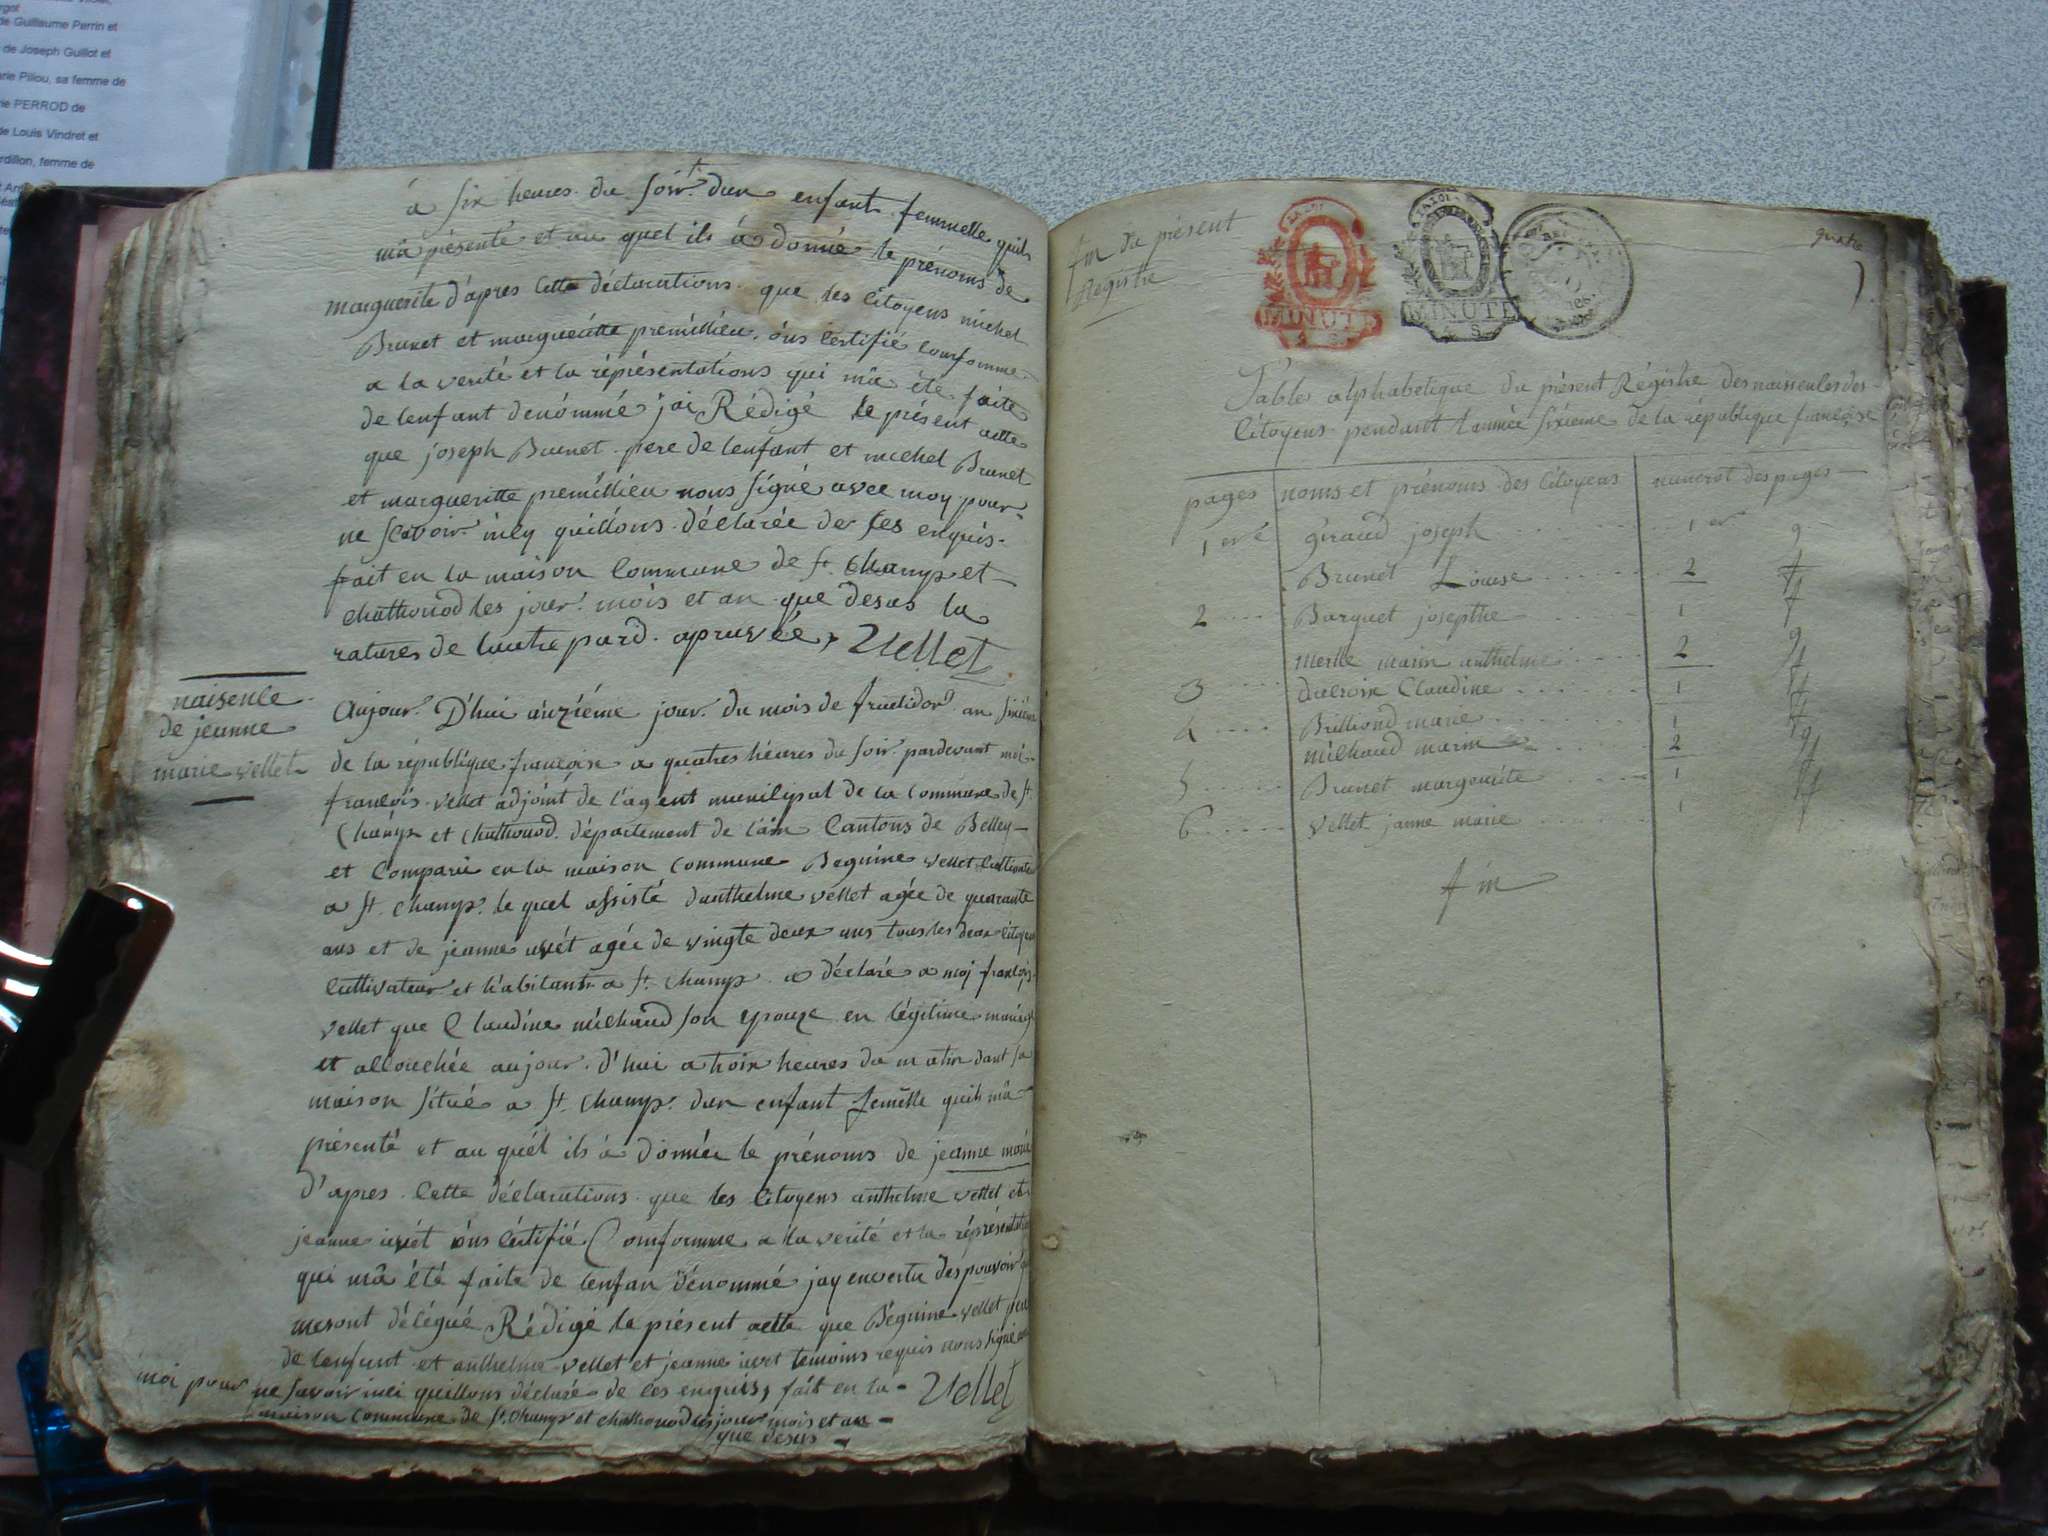 de Guillaume Perrin et
de Joseph Guillot et
rie Pillou, sa femme de
ie PERROD de
de Louis Vindret et
rdillon, femme de
à six heures du soir dun enfant femmelle quils
mâ présenté et au quel ils à donné le prénoms de
marguerite d'apres cette déclarations que les Citoyens michel
Brunet et margueritte premillieu ons Certifié Conformme
a la verité et la réprésentations qui mâ été faite
de lenfant denómmé jai Rédigé le présent acte
que joseph Brunet pere de lenfant et michel Brunet
et margueritte premillieu nons signé avec moy pour
ne scavoir déclarée de ses enquis
fait en la maison Commune de st. Champ et
chathonod les jour mois et an que desus la
ratures de lautre pard apruvée Vellet
naisence
de jeanne
marie vellet
Aujour D'hui ónziéme jour du mois de fructidor an sixieme
de la république françoise a quatres héures du soir pardevant moi
françois vellet adjoint de l'agent municipal de la Commune de st.
Champ et Chathonod département de l'ain Cantons de Belley
et Comparu en la maison Commune Beguine vellet Cultivateur
a st. Champ le quel assisté danthelme vellet agée de quarante
ans et de jeanne agée de vingte deux ans tous les deux citoyens
Cultivateur et habitant a st. Champ a déclaré a moi françois
vellet que Claudine michaud son epouze en légitime mariage
et accouchée aujour d'hui a troix heures du matin dant sa
maison situé a st. Champ dun enfant femelle quils mâ
présenté et au quel ils à donnée le prénoms de jeanne marie
D'apres Cette déclarations que les Citoyens anthelme vellet et
jeanne ons Certifié Comformme a la verité et la réprésentation
qui mâ été faite de lenfan dénommé jay envertu des pouvoir qui
mesont délégué Rédigé le présent acte que Béguine vellet pere
de lenfant et anthelme vellet et jeanne temoins requis nons signé avec
moi pour ne savoir déclaré de ces enquis, fait en la Vellet
maison commune de st. Champ et chathonod les jour mois et an
que desus
fin du présent
Registre
MINUTE
MINUTE
quatre
Table alphabetique du présent Régistre des naissences des
Citoyens pendant l'année sixieme de la république françoise
pages noms et prénoms des Citoyens numerot des pages
1 ere giraud joseph 1 er g
Brunet Louise 2 f
2 Barquet josepthe 1 f
merle marin anthelme 2 g
3 ducroix Claudine 1 f
4 Brilliond marie 1 f
michaud marin 2 g
5 Brunet margueritte 1 f
6 Vellet janne marie 1 f
fin